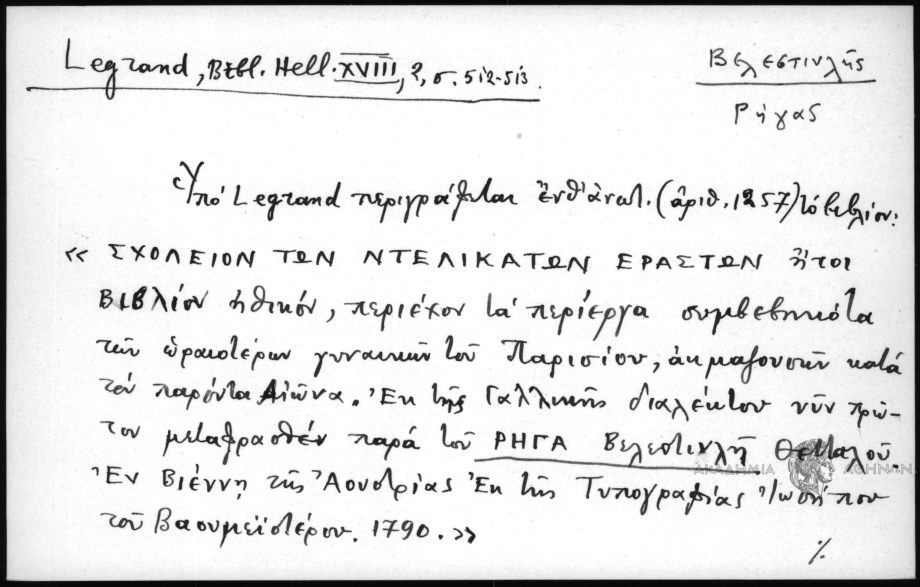 Legrand, Bibl. Hell. XVIII, 2, σ. 512-513.
Βελεστινλής
Ρήγας
Ὑπό Legrand περιγράφεται ἔνθ' ἀνωτ. (ἀριθ. 1257) τό βιβλίον:
« ΣΧΟΛΕΙΟΝ ΤΩΝ ΝΤΕΛΙΚΑΤΩΝ ΕΡΑΣΤΩΝ ἤτοι
Βιβλίον ἠθικόν, περιέχον τά περίεργα συμβεβηκότα
τῶν ὡραιοτέρων γυναικῶν τοῦ Παρισίου, ἀκμαζουσῶν κατά
τόν παρόντα Αἰῶνα. Ἐκ τῆς Γαλλικῆς διαλέκτου νῦν πρῶ-
τον μεταφρασθέν παρά τοῦ ΡΗΓΑ Βελεστινλῆ Θετταλοῦ.
ΑΚΑΔΗΜΙΑ ΑΘΗΝΩΝ
Ἐν Βιέννῃ τῆς Ἀουστρίας Ἐκ τῆς Τυπογραφίας Ἰωσήπου
τοῦ Βαουμεϊστέρου. 1790. »
%